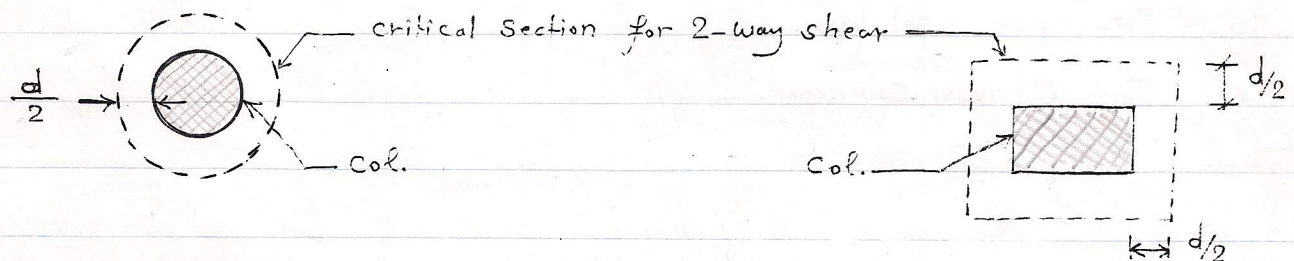 critical section for 2-way shear
d/2
d/2
Col.
Col.
d/2